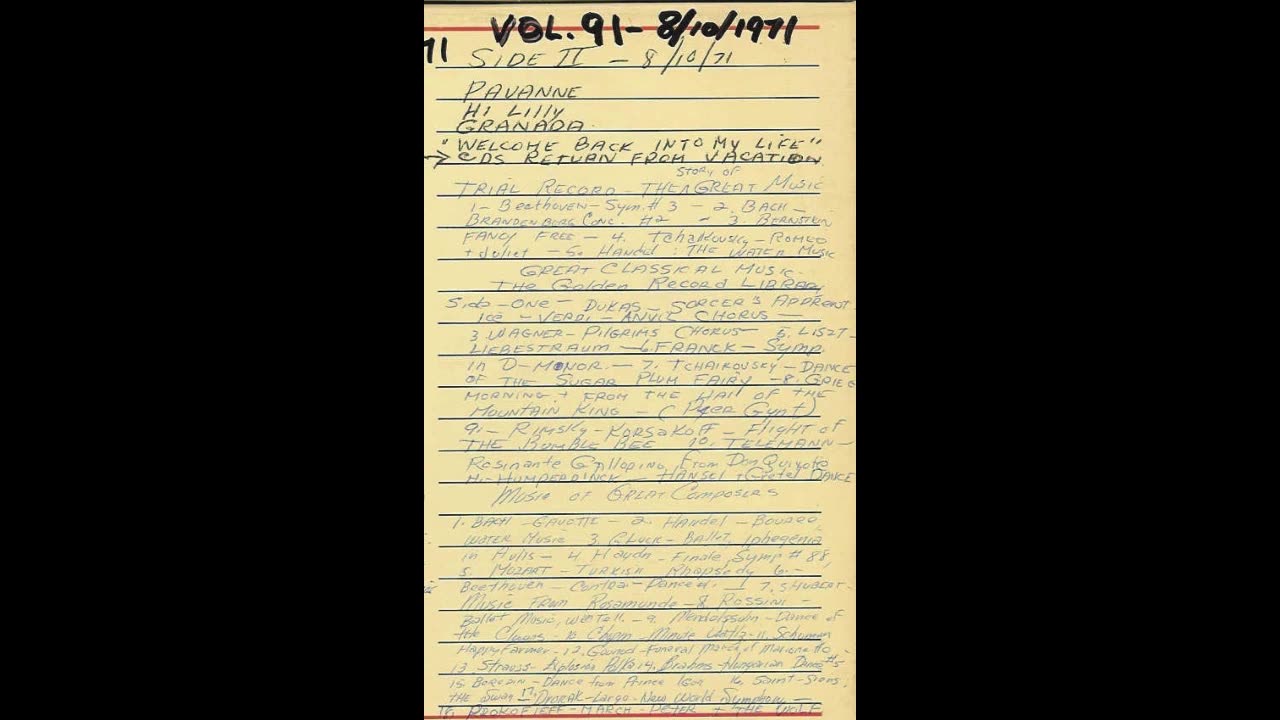 VOL. 91 - 8/10/1971
71
SIDE II - 8/10/71
PAVANNE
Hi Lilly
GRANADA
"WELCOME BACK INTO MY LIFE"
→ CDS RETURN FROM VACATION
STORY OF
TRIAL RECORD - THE ^ GREAT MUSIC
1- Beethoven - Sym. # 3 - 2. BACH -
BRANDENBORG CONC. #2 - 3. BERNSTEIN
FANCY FREE - 4. Tchaikovsky - ROMEO
+ Juliet - 5. HANDEL: THE WATER MUSIC
GREAT CLASSICAL MUSIC -
THE Golden RECORD LIBRARY
Side - ONE - DUKAS - SORCER'S APPRENT
- VERDI - ANVIL CHORUS -
3. WAGNER - PILGRIMS CHORUS - 5. LISZT -
LIEBESTRAUM - 6. FRANCK - SYMP.
in D-MINOR. - 7. TCHAIKOVSKY - DANCE
OF THE SUGAR PLUM FAIRY - 8. GRIEG
MORNING + FROM THE HALL OF THE
MOUNTAIN KING - (Peer Gynt)
9. - RIMSKY - KORSAKOFF - FLIGHT OF
THE BUMBLE BEE 10. TELEMANN -
Rosinante Galloping from Don Quixote
11- HUMPERDINCK - HANSEL + Gretel DANCE
Music OF GREAT Composers
1. BACH - GAVOTTE - 2. Handel - BOUREE,
WATER MUSIC 3. GLUCK - BALLET, Iphegenia
in Aulis - 4. Haydn - Finale, Symp # 88
5. MOZART - TURKISH Rhapsody 6. -
Beethoven - - Dance - 7. SHUBERT -
Music From Rosamunde - 8. ROSSINI -
Ballet Music, Wm Tell. - 9. Mendelssohn - Dance of
the Clowns - 10. Chopin - Minute Waltz - 11. Schuman
Happy Farmer - 12. Gounod - Funeral March of Marionette
13. Strauss - Explosion Polka 14. Brahms - Hungarian Dance #5
15 Borodin - Dance from Prince Igor 16. Saint-Siens;
the Swan 17. DVORAK - Largo - New World Symphony -
18. PROKOFIEFF - MARCH - PETER + THE WOLF